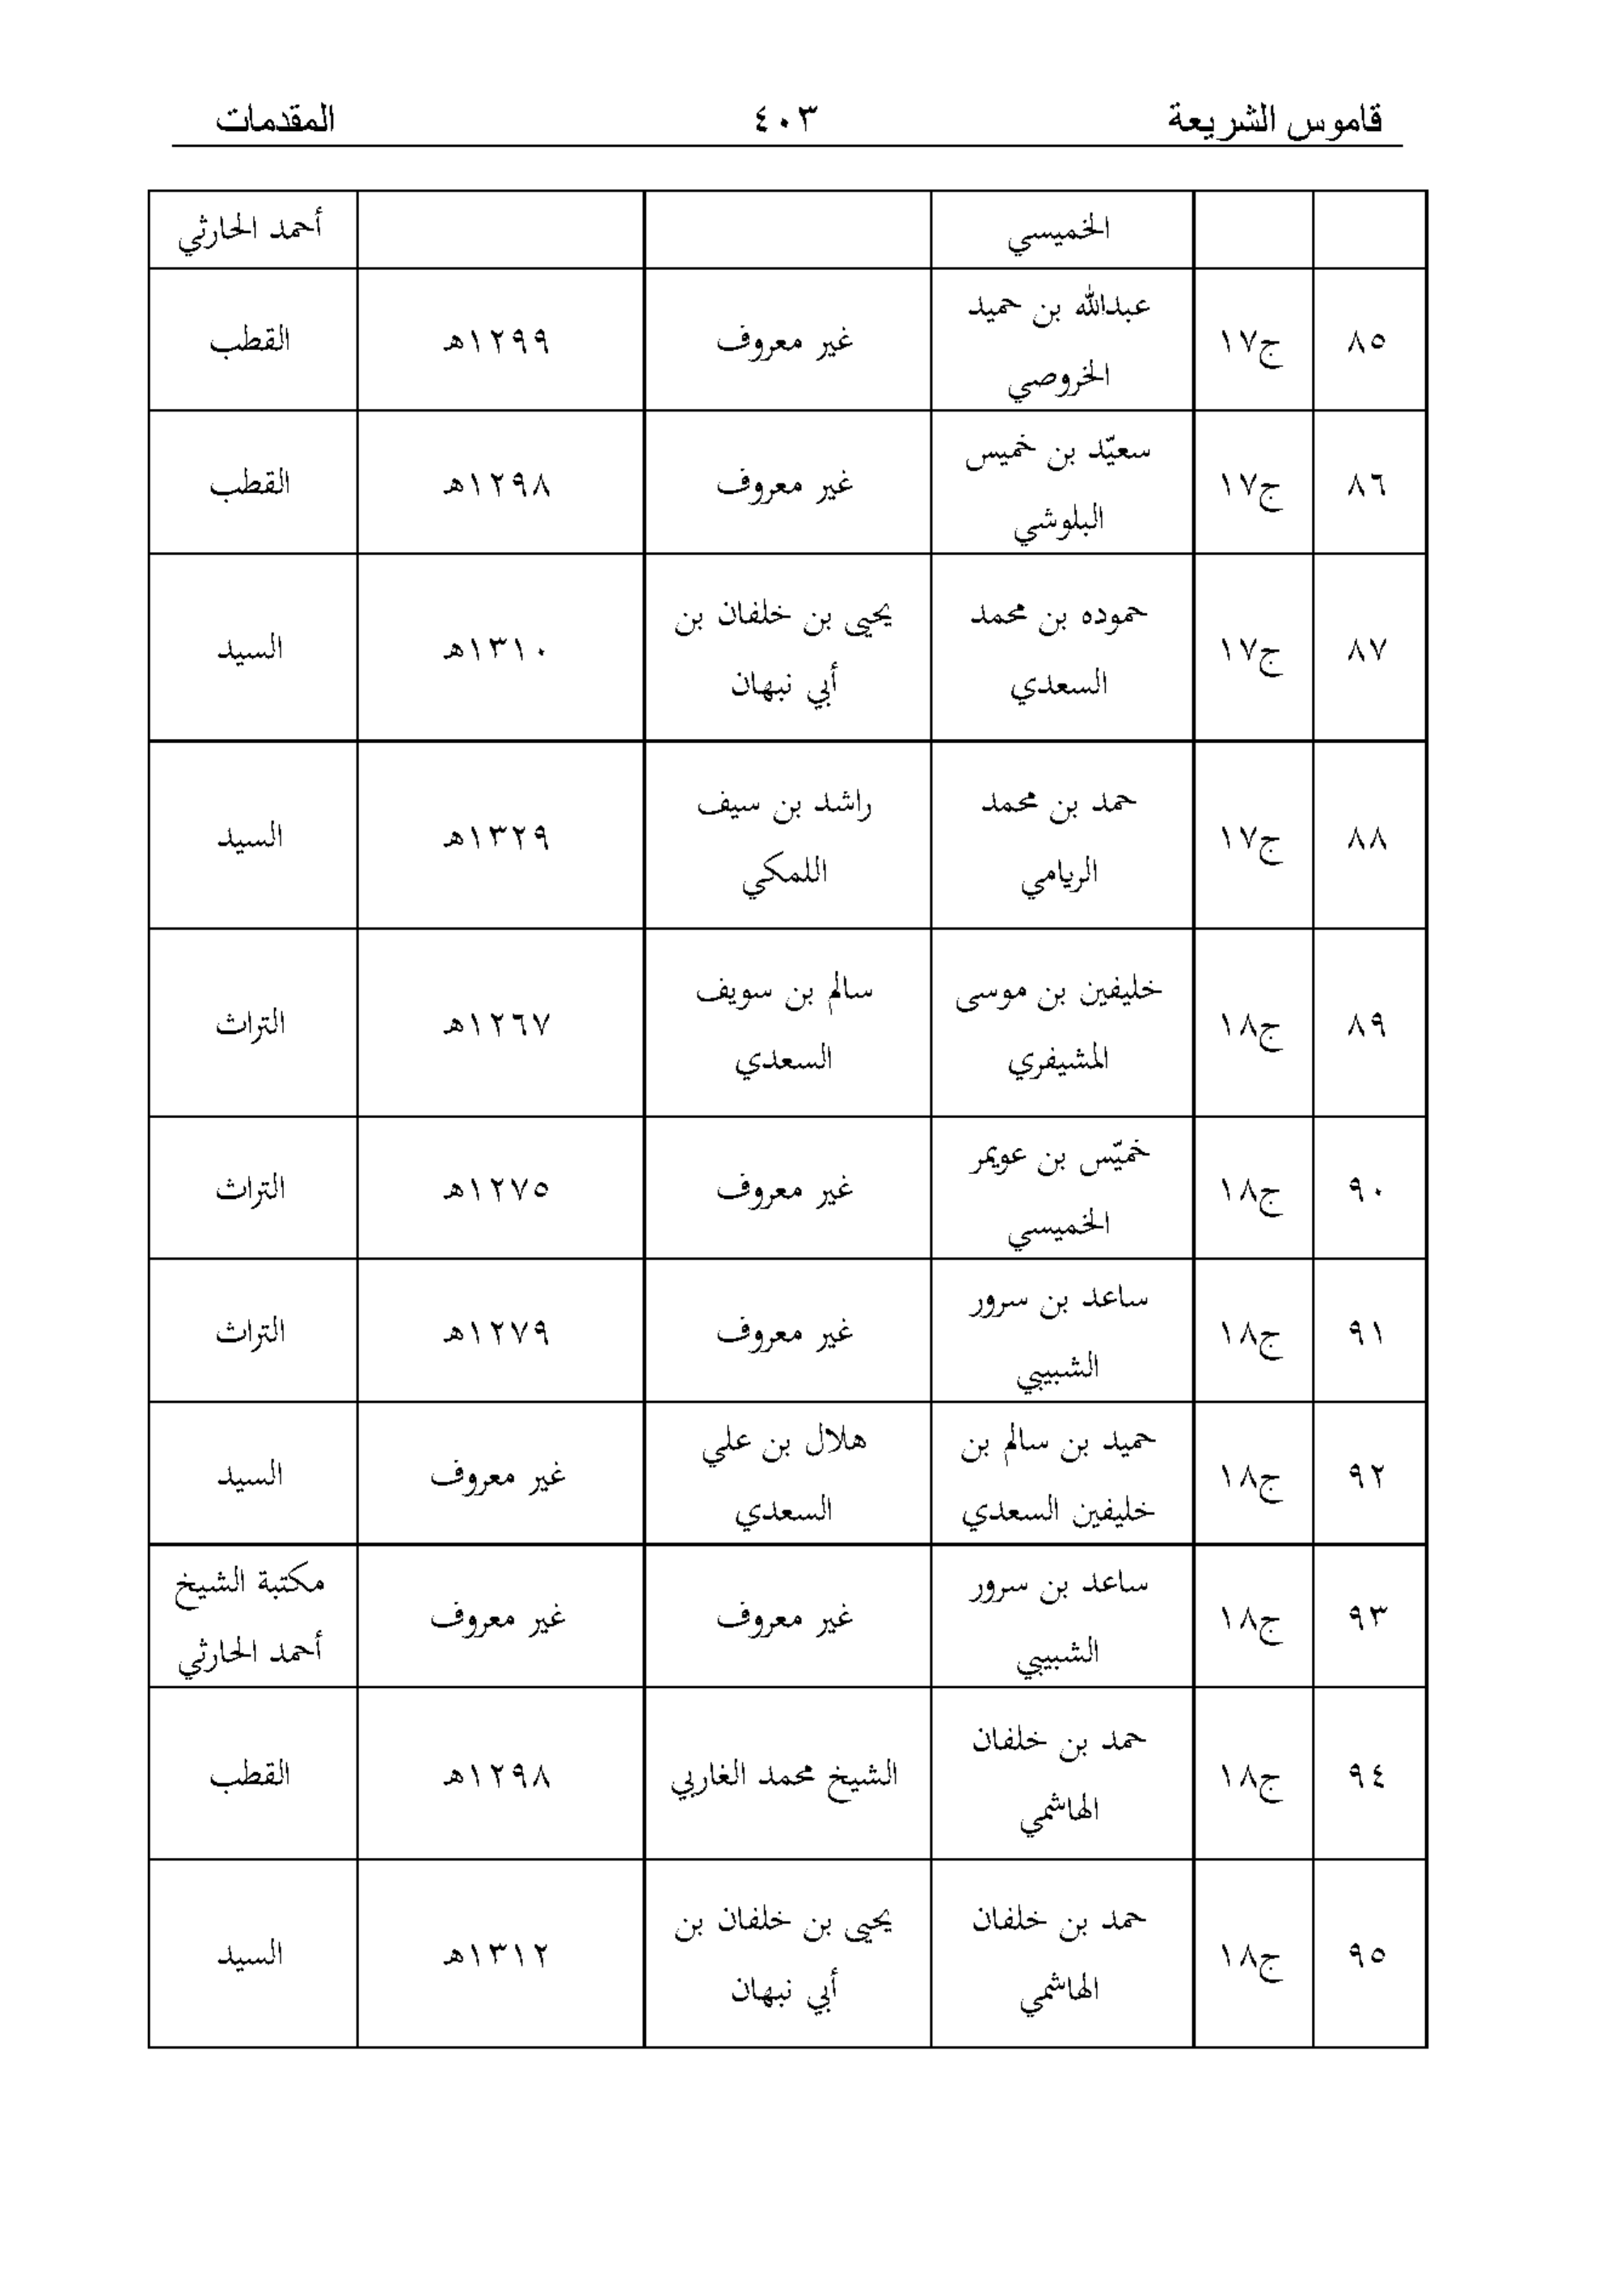 قاموس الشريعة ٤٠٣ المقدمات
الخميسي أحمد الحارثي
٨٥ ج١٧ عبدالله بن حميد الخروصي غير معروف ١٢٩٩هـ القطب
٨٦ ج١٧ سعيّد بن خميس البلوشي غير معروف ١٢٩٨هـ القطب
٨٧ ج١٧ حموده بن محمد السعدي يحيى بن خلفان بن أبي نبهان ١٣١٠هـ السيد
٨٨ ج١٧ حمد بن محمد الريامي راشد بن سيف اللمكي ١٣٢٩هـ السيد
٨٩ ج١٨ خليفين بن موسى المشيفري سالم بن سويف السعدي ١٢٦٧هـ التراث
٩٠ ج١٨ خميّس بن عويمر الخميسي غير معروف ١٢٧٥هـ التراث
٩١ ج١٨ ساعد بن سرور الشبيبي غير معروف ١٢٧٩هـ التراث
٩٢ ج١٨ حميد بن سالم بن خليفين السعدي هلال بن علي السعدي غير معروف السيد
٩٣ ج١٨ ساعد بن سرور الشبيبي غير معروف غير معروف مكتبة الشيخ أحمد الحارثي
٩٤ ج١٨ حمد بن خلفان الهاشمي الشيخ محمد الغاربي ١٢٩٨هـ القطب
٩٥ ج١٨ حمد بن خلفان الهاشمي يحيى بن خلفان بن أبي نبهان ١٣١٢هـ السيد